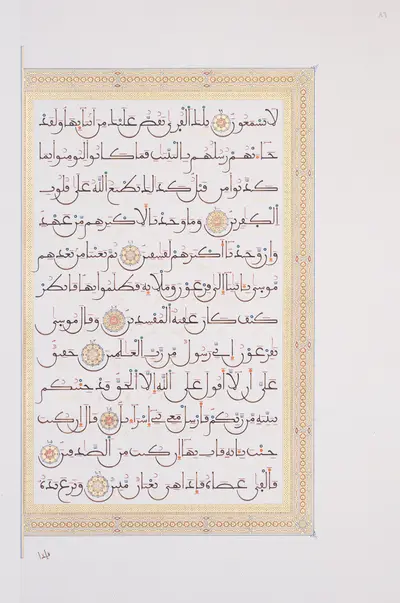 لا يسمعون تلك القرى نقص عليك من أنبائها ولقد
جاءتهم رسلهم بالبينت فما كانوا ليؤمنوا بما
كذبوا من قبل كذلك يطبع الله على قلوب
الكفرين وما وجدنا لأكثرهم من عهد
وإن وجدنا أكثرهم لفسقين ثم بعثنا من بعدهم
موسى بآيتنا إلى فرعون وملإيه فظلموا بها فانظر
كيف كان عقبة المفسدين وقال موسى
يفرعون إني رسول من رب العلمين حقيق
على أن لا أقول على الله إلا الحق قد جئتكم
ببينة من ربكم فأرسل معي بني إسراءيل قال إن كنت
جئت بآية فأت بها إن كنت من الصدقين
فألقى عصاه فإذا هي ثعبان مبين ونزع يده